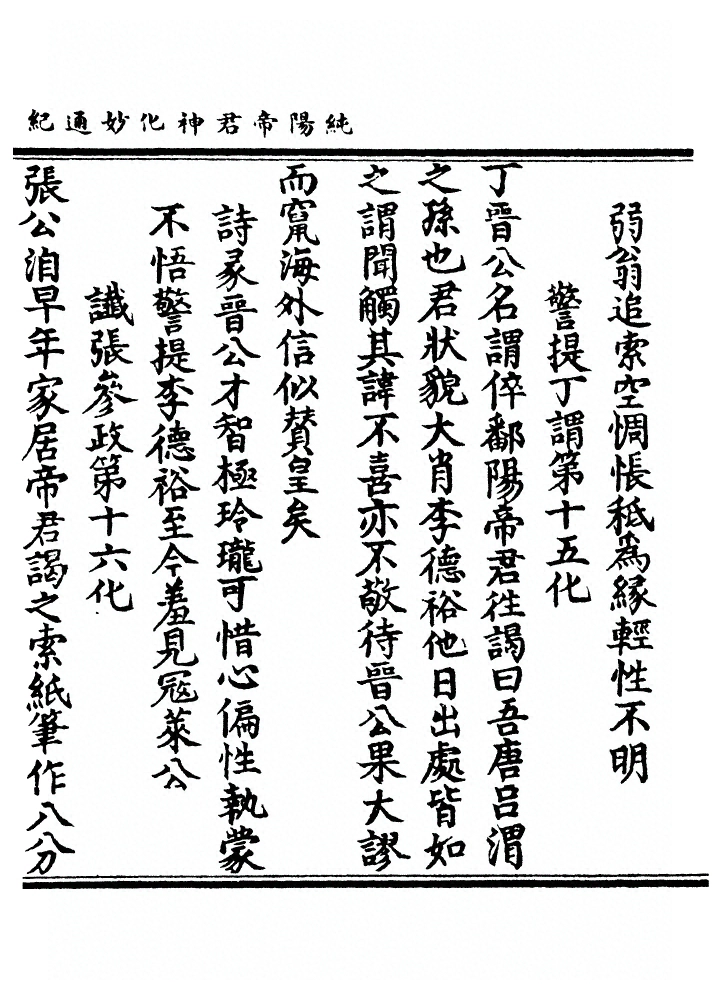 純陽帝君神化妙通紀
弱翁追索空惆悵秪為緣輕性不明
警提丁謂第十五化
丁晉公名謂倅鄱陽帝君徃謁曰吾唐呂渭
之孫也君狀貌大肖李德裕他日出處皆如
之謂聞觸其諱不喜亦不敬待晉公果大謬
而竄海外信似賛皇矣
詩彖晉公才智極玲瓏可惜心偏性執蒙
不悟警提李德裕至今羞見冦萊公
讖張參政第十六化
張公洎早年家居帝君謁之索紙筆作八八分